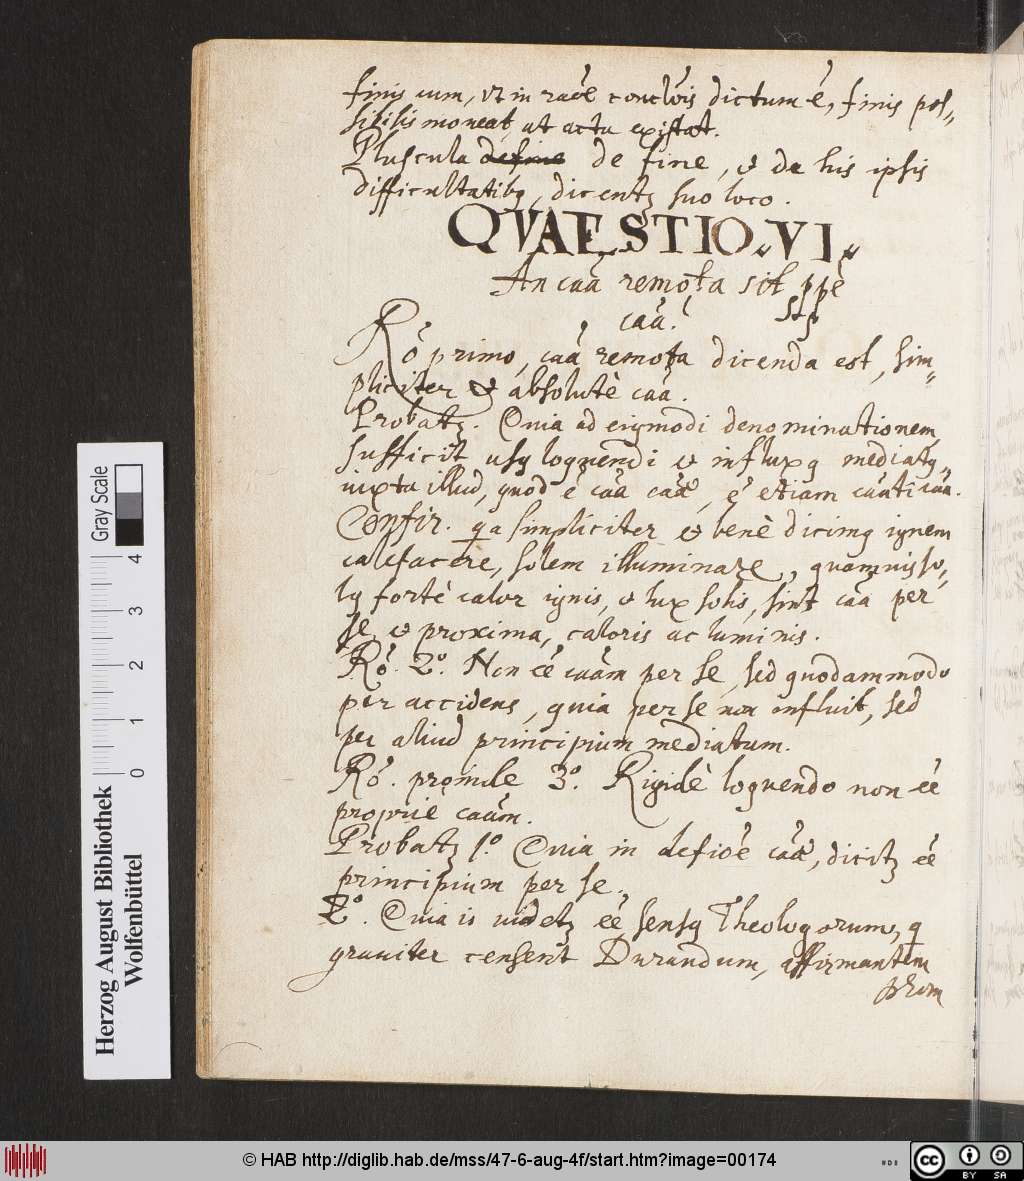 finis cum, vt in rãõe conclõis dictum ẽ, finis pos-
sibilis moueat, ut actu existat.
Pluscula de fine, & de his ipsis
difficultatibq, dicentz suo loco.
QVAESTIO. VI.
An caã remota sit ppẽ
caã?
Rõ primo, caã remota dicenda est, sim-
pliciter & absolutè caã.
Probatz. Quia ad eiqmodi denominationem
sufficit usq loquendi & influxq mediatq,
iuxta illud, quod ẽ caã caã, ẽ etiam caũti caã.
Confir. qa simpliciter & benè dicimq ignem
calefacere, solem illuminare, quamuis so-
lq fortè calor ignis, & lux solis, sint caã per
se & proxima, caloris ac luminis.
Rõ. 2º. Non eẽ caãm per se, sed quodammodo
per accidens, quia per se non influit, sed
per aliud principium mediatum.
Rõ. proinde 3º. Rigidè loquendo non eẽ
proprie caãm.
Probatz 1º. Quia in defiõe caã, dicitz eẽ
principium per se.
2º. Quia is uidetz eẽ sensq Theologorum, q
grauiter censent Durandum, affirmantem
Herzog August Bibliothek
Wolfenbüttel
Gray Scale
0 1 2 3 4
© HAB http://diglib.hab.de/mss/47-6-aug-4f/start.htm?image=00174
cc BY SA